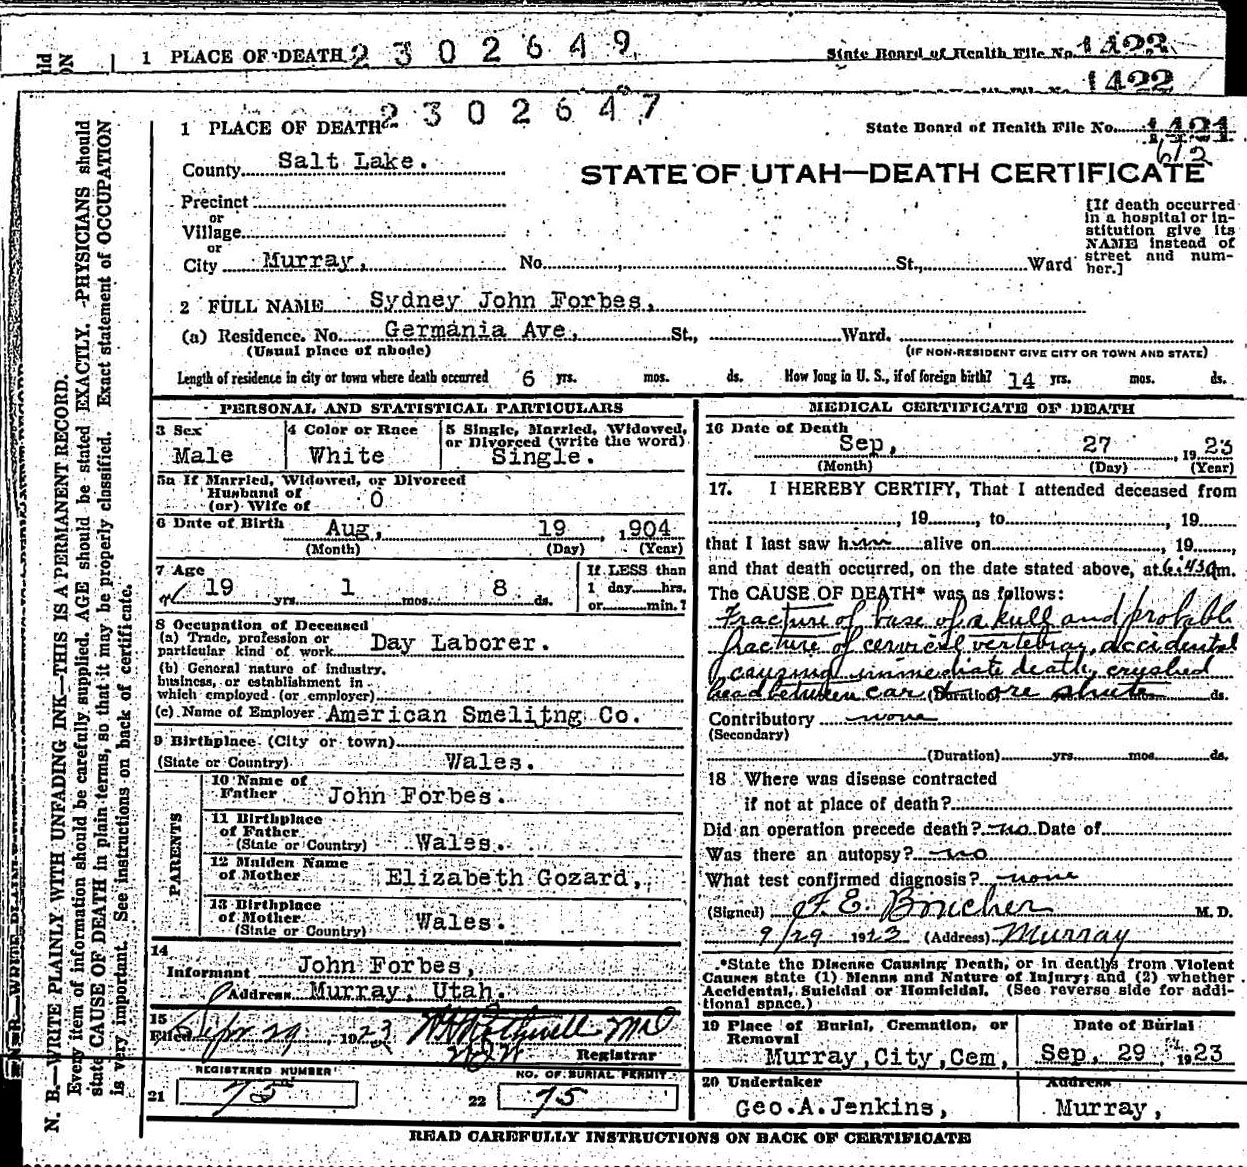 1 PLACE OF DEATH 2302649 State Board of Health File No. 1423
1422
1 PLACE OF DEATH 2302647 State Board of Health File No. 1421
612
County Salt Lake.
STATE OF UTAH—DEATH CERTIFICATE
Precinct
or
Village
or
City Murray, No. St., Ward
[If death occurred
in a hospital or in-
stitution give its
NAME instead of
street and num-
ber.]
2 FULL NAME Sydney John Forbes,
(a) Residence. No. Germania Ave, St., Ward.
(Usual place of abode) (IF NON-RESIDENT GIVE CITY OR TOWN AND STATE)
Length of residence in city or town where death occurred 6 yrs. mos. ds. How long in U. S., if of foreign birth? 14 yrs. mos. ds.
PERSONAL AND STATISTICAL PARTICULARS
3 Sex Male
4 Color or Race White
5 Single, Married, Widowed,
or Divorced (write the word)
Single.
5a If Married, Widowed, or Divorced
Husband of
(or) Wife of 0
6 Date of Birth Aug, 19 , 1904
(Month) (Day) (Year)
7 Age 19 yrs. 1 mos. 8 ds.
If LESS than
1 day hrs.
or min.?
8 Occupation of Deceased
(a) Trade, profession or
particular kind of work Day Laborer.
(b) General nature of industry,
business, or establishment in
which employed (or employer)
(c) Name of Employer American Smelitng Co.
9 Birthplace (City or town)
(State or Country) Wales.
PARENTS
10 Name of
Father John Forbes.
11 Birthplace
of Father
(State or Country) Wales.
12 Maiden Name
of Mother Elizabeth Gozard,
13 Birthplace
of Mother
(State or Country) Wales.
14
Informant John Forbes,
Address Murray, Utah.
15
Filed Sept 29, 1923
Registrar
REGISTERED NUMBER
21 75
NO. OF BURIAL PERMIT
22 75
MEDICAL CERTIFICATE OF DEATH
16 Date of Death
Sep, 27 , 1923
(Month) (Day) (Year)
17. I HEREBY CERTIFY, That I attended deceased from
, 19 , to , 19
that I last saw him alive on , 19 ,
and that death occurred, on the date stated above, at 6:45 am.
The CAUSE OF DEATH* was as follows:
Fracture of base of skull and probable
fracture of cervical vertebrae, accidental
causing immediate death, crushed
head between car & ore chute
(Duration) ds.
Contributory none
(Secondary)
(Duration) yrs. mos. ds.
18 Where was disease contracted
if not at place of death?
Did an operation precede death? no Date of
Was there an autopsy? no
What test confirmed diagnosis? none
(Signed) F. E. Boucher M. D.
9/29 1923 (Address) Murray
*State the Disease Causing Death, or in deaths from Violent
Causes state (1) Means and Nature of Injury; and (2) whether
Accidental, Suicidal or Homicidal. (See reverse side for addi-
tional space.)
19 Place of Burial, Cremation, or
Removal
Murray, City, Cem,
Date of Burial
Sep, 29 1923
20 Undertaker
Geo. A. Jenkins,
Address
Murray,
READ CAREFULLY INSTRUCTIONS ON BACK OF CERTIFICATE
N. B.—WRITE PLAINLY WITH UNFADING INK—THIS IS A PERMANENT RECORD.
Every item of information should be carefully supplied. AGE should be stated EXACTLY. PHYSICIANS should
state CAUSE OF DEATH in plain terms, so that it may be properly classified. Exact statement of OCCUPATION
is very important. See instructions on back of certificate.